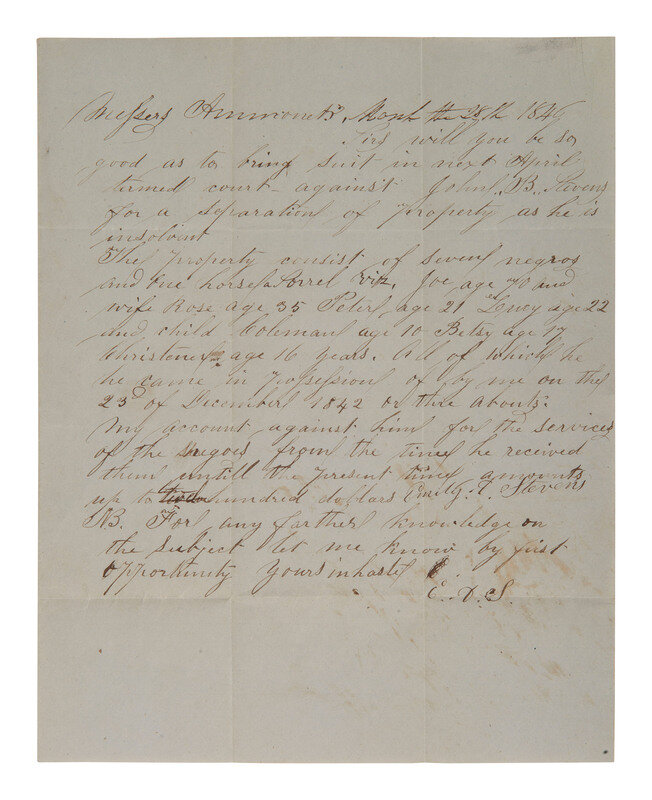 Messers Ammonett March the 28th 1846
Sirs will you be so
good as to bring suit in next April
termed court against John, B. Stevens
for a separation of Property as he is
insolvent
The Property consist of seven negros
and one horse sorrel viz. Joe age 70 and
wife Rose age 35 Peter age 21 Lewcy age 22
and child Coleman age 10 Betsy age 17
Christener age 16 years. All of which he
he came in possession of by me on the
23d of December 1842 or thre abouts.
My account against him for the services
of the negros from the time he received
them untill the present time amounts
up to hundred dollars Emily. A. Stevens
NB. For any farther knowledge on
the subject let me know by first
opportunity Yours in haste
E. A. S.